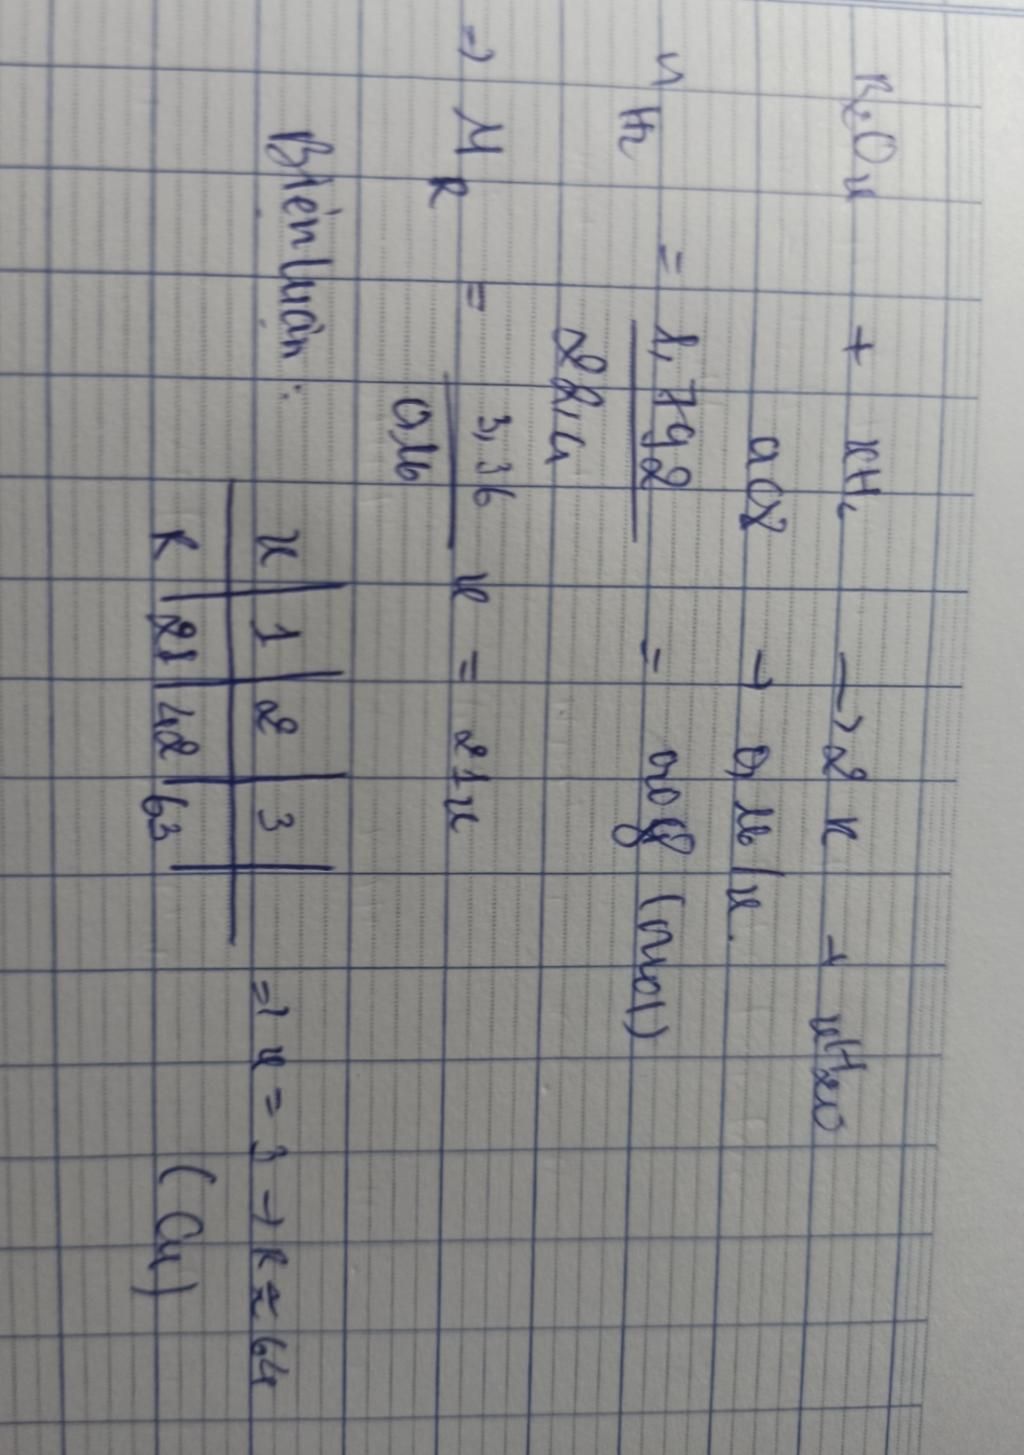 R₂Oₓ + xH₂ → 2R + xH₂O
0,08 → 0,16/x.
n H₂ = 1,792 / 22,4 = 0,08 (mol)
=> M R = 3,36 / 0,16 x = 21x
Biện luận:
x | 1 | 2 | 3 |
R | 21 | 42 | 63
=> x = 3 → R ≈ 64
(Cu)